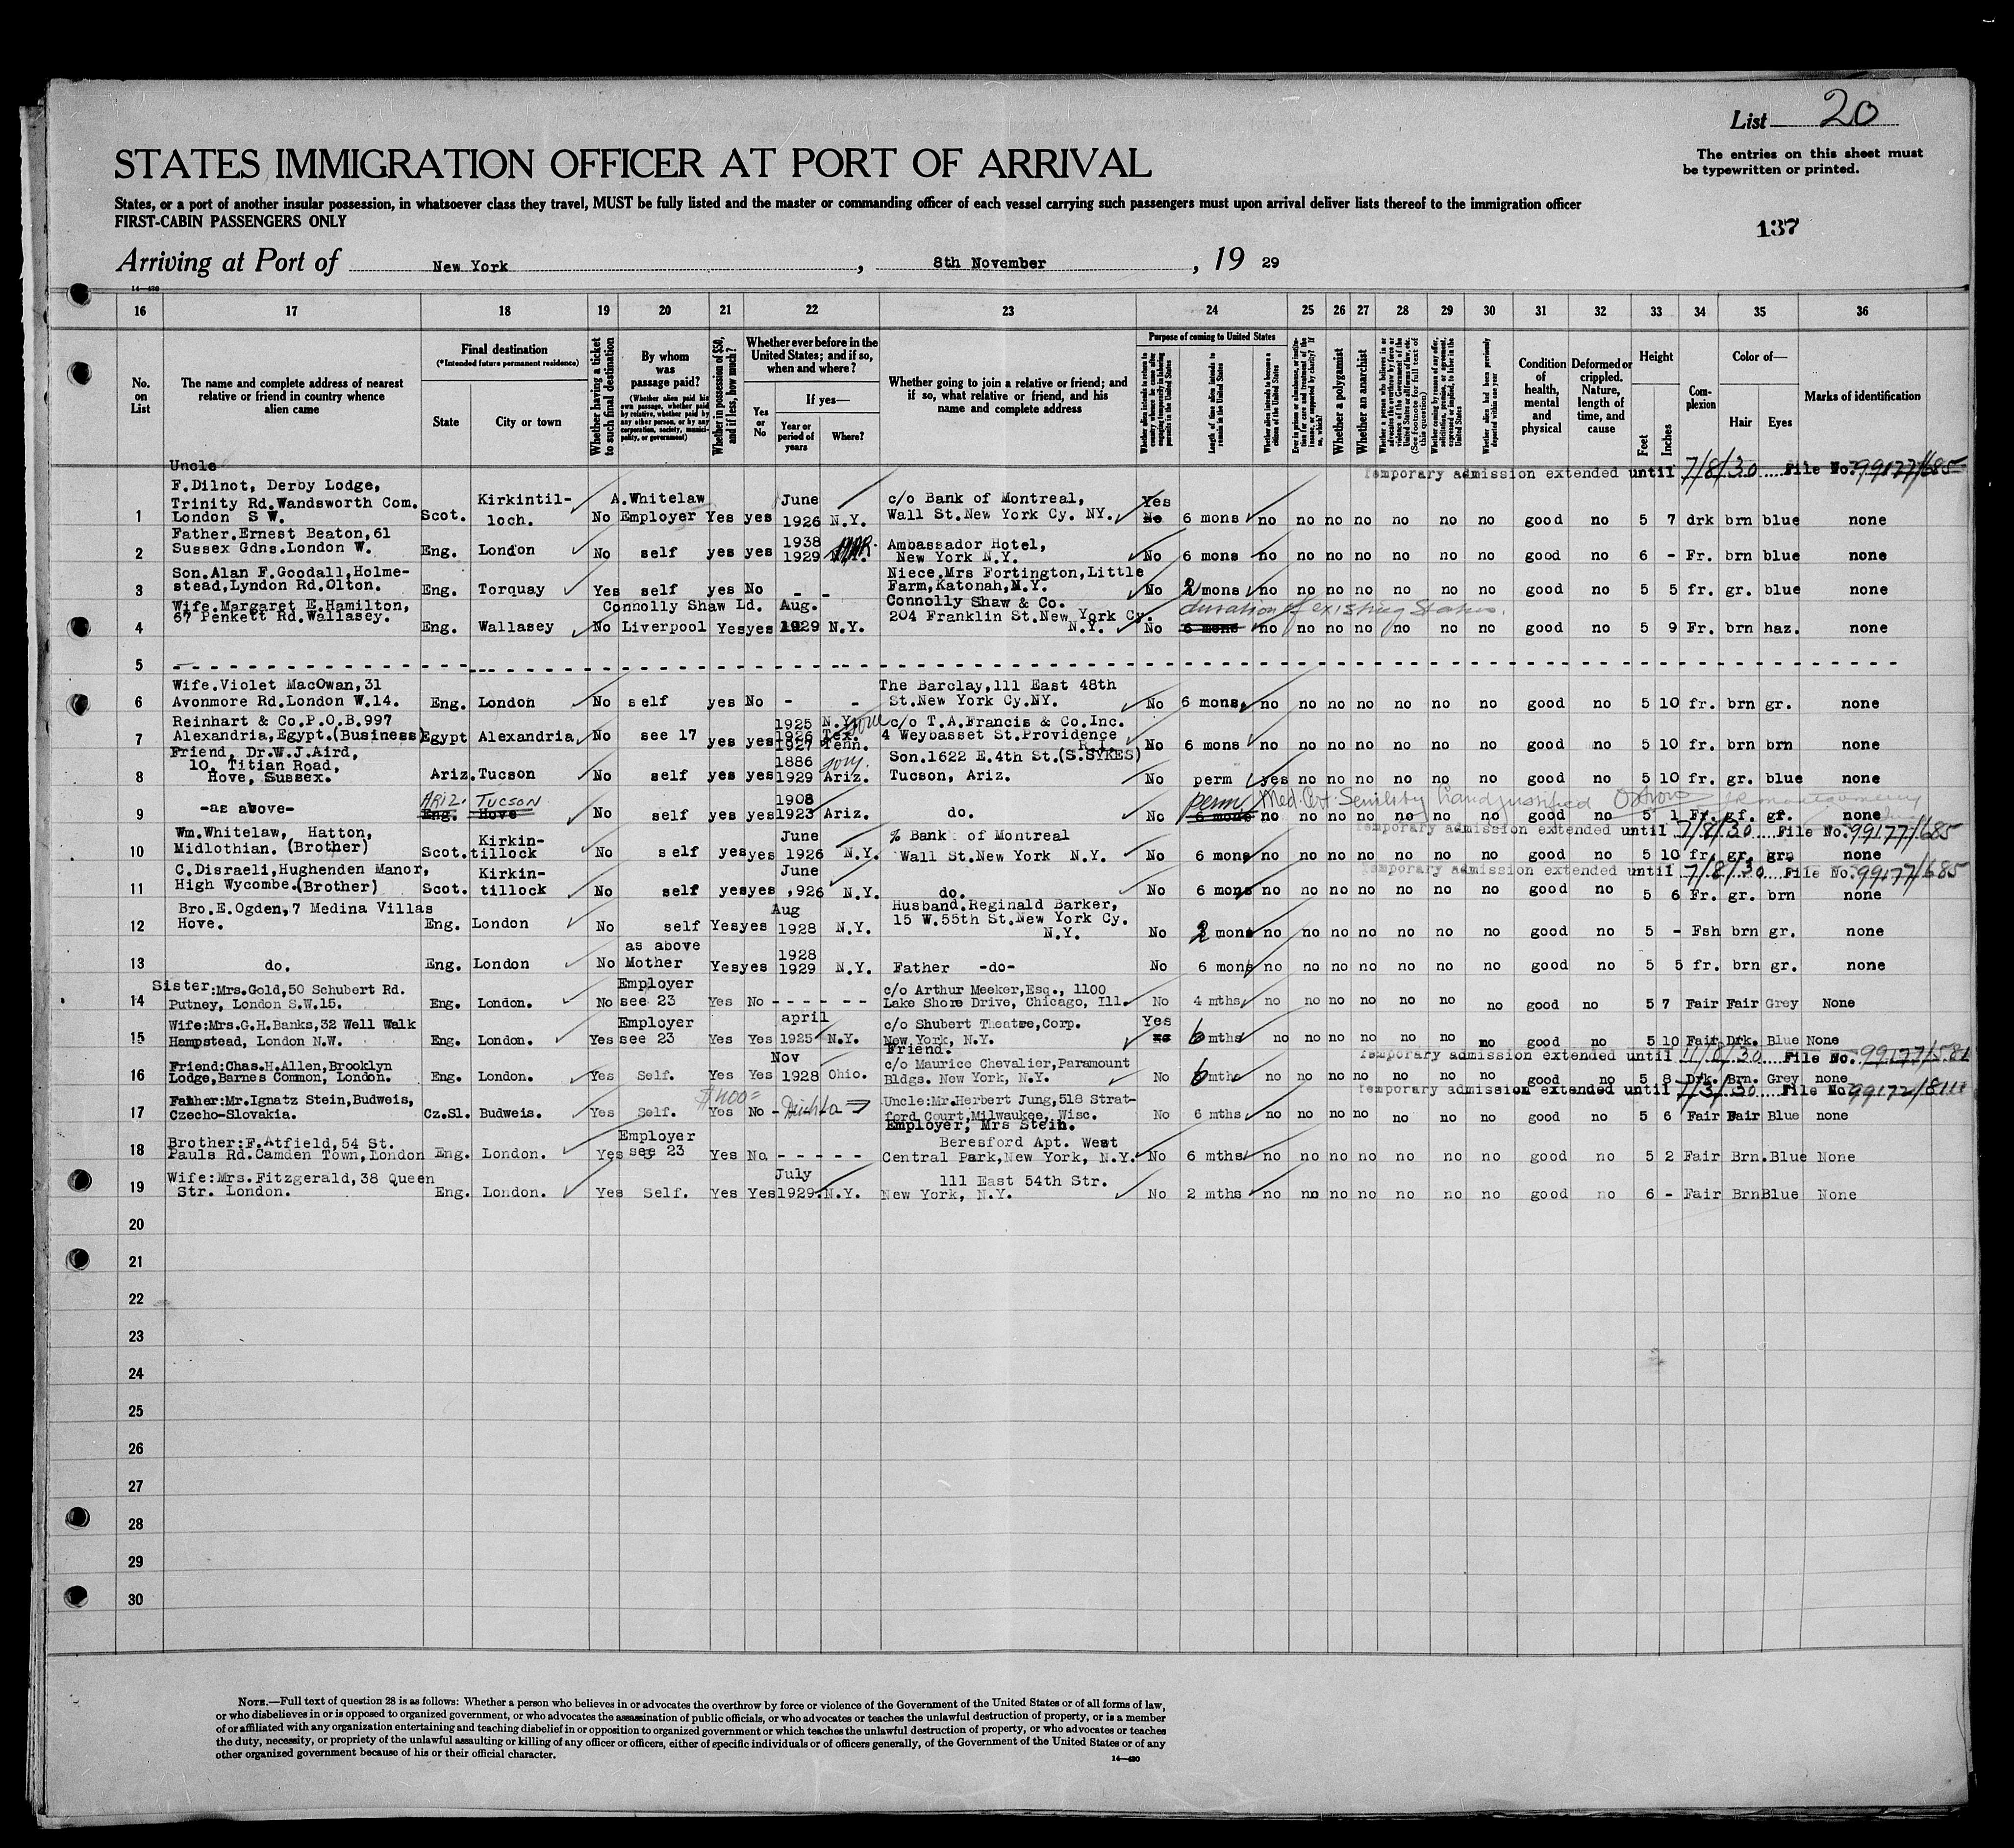 List 20
STATES IMMIGRATION OFFICER AT PORT OF ARRIVAL
The entries on this sheet must
be typewritten or printed.
States, or a port of another insular possession, in whatsoever class they travel, MUST be fully listed and the master or commanding officer of each vessel carrying such passengers must upon arrival deliver lists thereof to the immigration officer
FIRST-CABIN PASSENGERS ONLY
137
Arriving at Port of New York, 8th November, 19 29
14—430
16 17 18 19 20 21 22 23 24 25 26 27 28 29 30 31 32 33 34 35 36
No. on List
The name and complete address of nearest relative or friend in country whence alien came
Final destination
(*Intended future permanent residence)
State
City or town
Whether having a ticket to such final destination
By whom was passage paid?
(Whether alien paid his own passage, whether paid by relative, whether paid by any other person, or by any corporation, society, municipality, or government)
Whether in possession of $50, and if less, how much?
Whether ever before in the United States; and if so, when and where?
Yes or No
If yes—
Year or period of years
Where?
Whether going to join a relative or friend; and if so, what relative or friend, and his name and complete address
Purpose of coming to United States
Whether alien intends to return to country whence he came after engaging temporarily in laboring pursuits in the United States
Length of time alien intends to remain in the United States
Whether alien intends to become a citizen of the United States
Ever in prison or almshouse, or institution for care and treatment of the insane, or supported by charity? If so, which?
Whether a polygamist
Whether an anarchist
Whether a person who believes in or advocates the overthrow by force or violence of the Government of the United States or all forms of law, etc. (See footnote for full text of this question)
Whether coming by reason of any offer, solicitation, promise, or agreement, expressed or implied, to labor in the United States
Whether alien had been previously deported within one year
Condition of health, mental and physical
Deformed or crippled. Nature, length of time, and cause
Height
Feet
Inches
Complexion
Color of—
Hair
Eyes
Marks of identification
Temporary admission extended until 7/8/30 File No. 99177/685
1 Uncle F.Dilnot, Derby Lodge, Trinity Rd.Wandsworth Com. London S W. Scot. Kirkintil-loch. No A.Whitelaw Employer Yes yes June 1926 N.Y. c/o Bank of Montreal, Wall St.New York Cy. NY. Yes No 6 mons no no no no no no no good no 5 7 drk brn blue none
2 Father.Ernest Beaton,61 Sussex Gdns.London W. Eng. London No self yes yes 1938 1929 Ambassador Hotel, New York N.Y. No 6 mons no no no no no no no good no 6 - Fr. brn blue none
3 Son.Alan F.Goodall,Holme-stead,Lyndon Rd.Olton. Eng. Torquay Yes self yes No - - Niece.Mrs Fortington,Little Farm,Katonah,N.Y. No 2 mons no no no no no no no good no 5 5 fr. gr. blue none
4 Wife.Margaret E.Hamilton, 67 Penkett Rd.Wallasey. Eng. Wallasey No Connolly Shaw Ld. Liverpool Yes yes Aug. 1929 N.Y. Connolly Shaw & Co. 204 Franklin St.New York Cy. N.Y. No 6 mons duration of existing Status. no no no no no no no good no 5 9 Fr. brn haz. none
5
6 Wife.Violet MacOwan,31 Avonmore Rd.London W.14. Eng. London No self yes No - - The Barclay,111 East 48th St.New York Cy.NY. No 6 mons. no no no no no no no good no 5 10 fr. brn gr. none
7 Reinhart & Co.P.O.B.997 Alexandria,Egypt.(Business) Egypt Alexandria No see 17 yes yes 1925 N.Y. 1926 Tex. 1927 Tenn. c/o T.A.Francis & Co.Inc. 4 Weybasset St.Providence R.I. No 6 mons no no no no no no no good no 5 10 fr. brn brn none
8 Friend, Dr.W.J.Aird, 10, Titian Road, Hove, Sussex. Ariz. Tucson No self yes yes 1886 1929 Ariz. Son.1622 E.4th St.(S.SYKES) Tucson, Ariz. No perm yes no no no no no no good no 5 10 fr. gr. blue none
9 -as above- Ariz. Tucson Eng. Hove No self yes yes 1908 1923 Ariz. do. No perm 6 mons no Med. Cert. Senility no no no no no no good no 5 1 Fr. gr. gr. none
Temporary admission extended until 7/8/30 File No. 99177/685
10 Wm.Whitelaw, Hatton, Midlothian. (Brother) Scot. Kirkin-tillock No self yes yes June 1926 N.Y. % Bank of Montreal Wall St.New York N.Y. No 6 mons no no no no no no no good no 5 10 fr. gr. grn none
Temporary admission extended until 7/8/30 File No. 99177/685
11 C.Disraeli,Hughenden Manor, High Wycombe.(Brother) Scot. Kirkin-tillock No self yes yes June ,926 N.Y. do. No 6 mons no no no no no no no good no 5 6 Fr. gr. brn none
12 Bro.E.Ogden,7 Medina Villas Hove. Eng. London No self Yes yes Aug 1928 N.Y. Husband.Reginald Barker, 15 W.55th St.New York Cy. N.Y. No 2 mons no no no no no no no good no 5 - Fsh brn gr. none
13 do. Eng. London No as above Mother Yes yes 1928 1929 N.Y. Father -do- No 6 mons no no no no no no no good no 5 5 fr. brn gr. none
14 Sister:Mrs.Gold,50 Schubert Rd. Putney, London S.W.15. Eng. London. No Employer see 23 Yes No - - - - - - c/o Arthur Meeker,Esq., 1100 Lake Shore Drive, Chicago, Ill. No 4 mths no no no no no no no good no 5 7 Fair Fair Grey None
15 Wife:Mrs.G.H.Banks,32 Well Walk Hampstead, London N.W. Eng. London. Yes Employer see 23 Yes Yes april 1925 N.Y. c/o Shubert Theatre,Corp. New York, N.Y. Yes no 6 mths no no no no no no no good no 5 10 Fair Drk. Blue None
Temporary admission extended until File No. 99177/581
16 Friend:Chas.H.Allen,Brooklyn Lodge,Barnes Common, London. Eng. London. Yes Self. Yes Yes Nov 1928 Ohio. Friend. c/o Maurice Chevalier,Paramount Bldgs. New York, N.Y. No 6 mths no no no no no no no good no 5 8 Drk. Brn. Grey none
Temporary admission extended until 7/3/30 File No
17 Father:Mr.Ignatz Stein,Budweis, Czecho-Slovakia. Cz.Sl. Budweis. Yes Self. $400= Yes No Uncle:Mr.Herbert Jung,518 Strat-ford Court,Milwaukee, Wisc. No 6 mths no no no no no no no good no 5 6 Fair Fair Blue none
18 Brother:F.Atfield,54 St. Pauls Rd.Camden Town,London Eng. London. Yes Employer see 23 Yes No - - - - - Employer; Mrs Stein. Beresford Apt. West Central Park,New York, N.Y. No 6 mths no no no no no no no good no 5 2 Fair Brn. Blue None
19 Wife:Mrs.Fitzgerald,38 Queen Str. London. Eng. London. Yes Self. Yes Yes July 1929. N.Y. 111 East 54th Str. New York, N.Y. No 2 mths no no no no no no no good no 6 - Fair Brn Blue None
20
21
22
23
24
25
26
27
28
29
30
NOTE.—Full text of question 28 is as follows: Whether a person who believes in or advocates the overthrow by force or violence of the Government of the United States or of all forms of law,
or who disbelieves in or is opposed to organized government, or who advocates the assassination of public officials, or who advocates or teaches the unlawful destruction of property, or is a member
of or affiliated with any organization entertaining and teaching disbelief in or opposition to organized government or which teaches the unlawful destruction of property, or who advocates or teaches
the duty, necessity, or propriety of the unlawful assaulting or killing of any officer or officers, either of specific individuals or of officers generally, of the Government of the United States or of any
other organized government because of his or their official character.
14—430